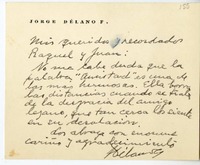 155
JORGE DÉLANO F.
Mis queridos y recordados
Raquel y Juan:
No me cabe duda que la
palabra "Amistad" es una de
las más hermosas. Ella borra
las distancias cuando se trata
de la desgracia del amigo
lejano, que tan cerca lo siente
en su desolación.
Los abraza con enorme
cariño y agradecimiento